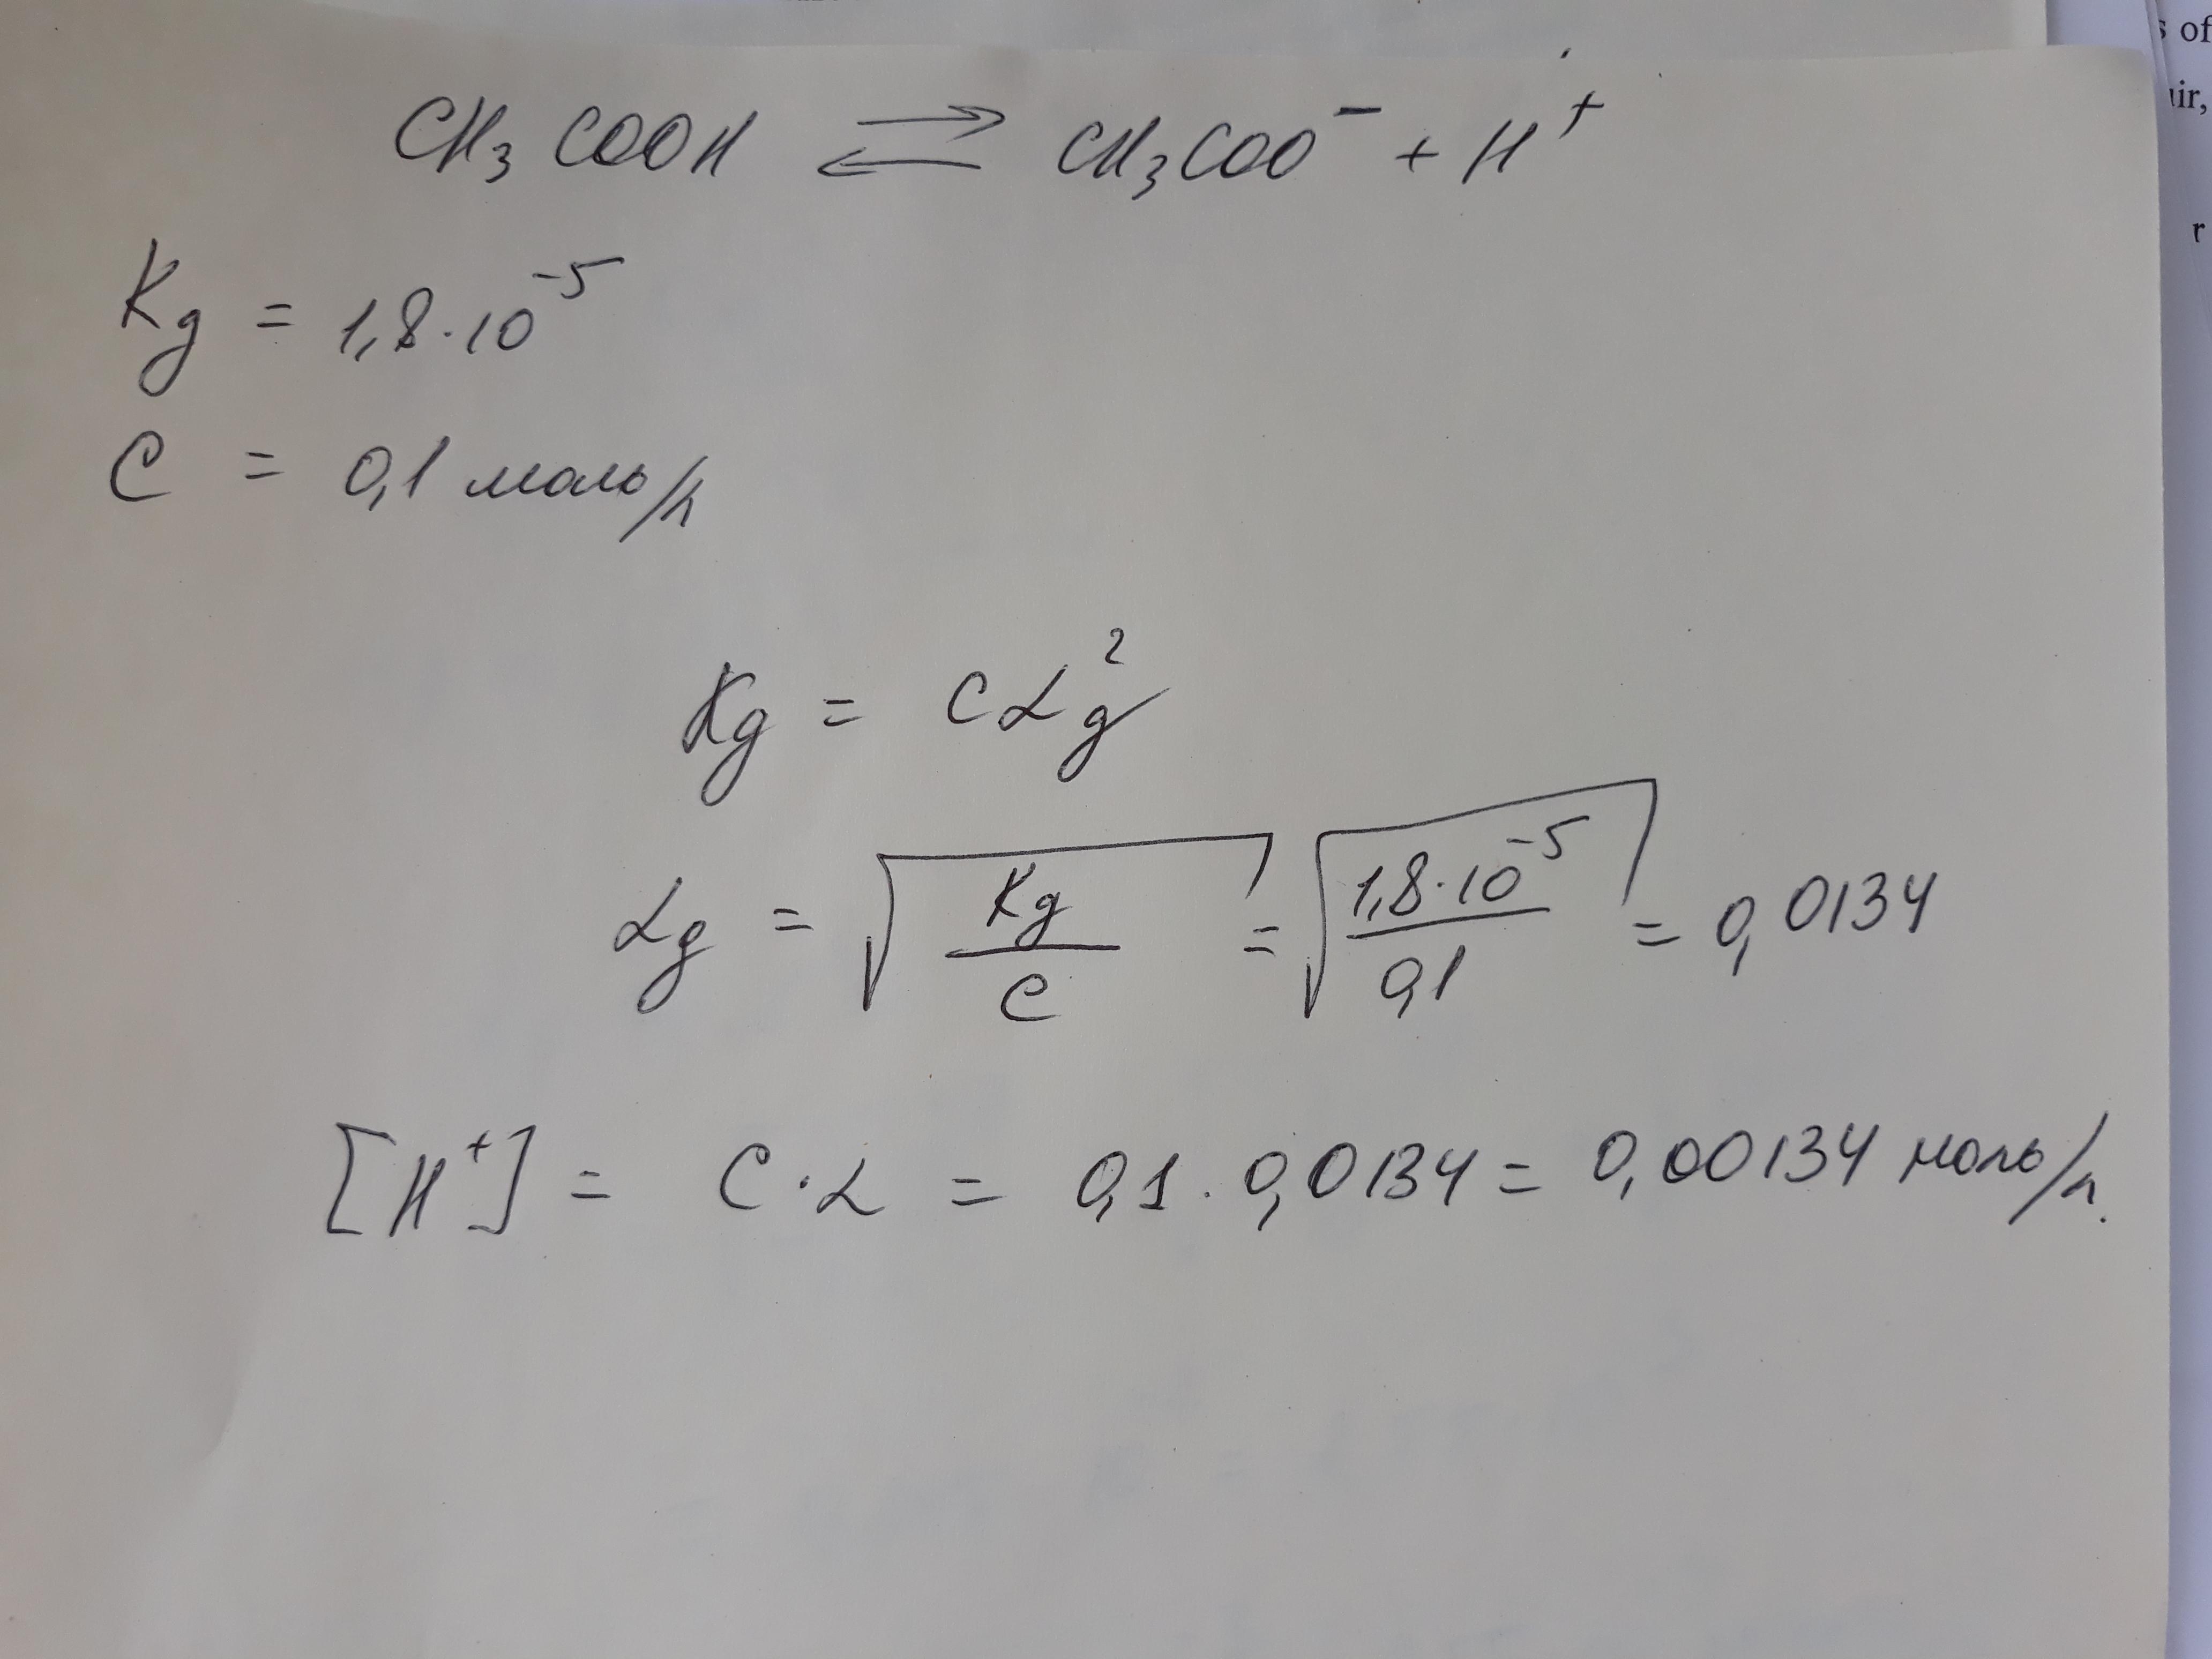 CH₃COOH ⇄ CH₃COO⁻ + H⁺
Kg = 1,8·10⁻⁵
C = 0,1 моль/л
Kg = Cαg²
αg = √(Kg/C) = √(1,8·10⁻⁵/0,1) = 0,0134
[H⁺] = C·α = 0,1·0,0134 = 0,00134 моль/л.
s of
air,
r